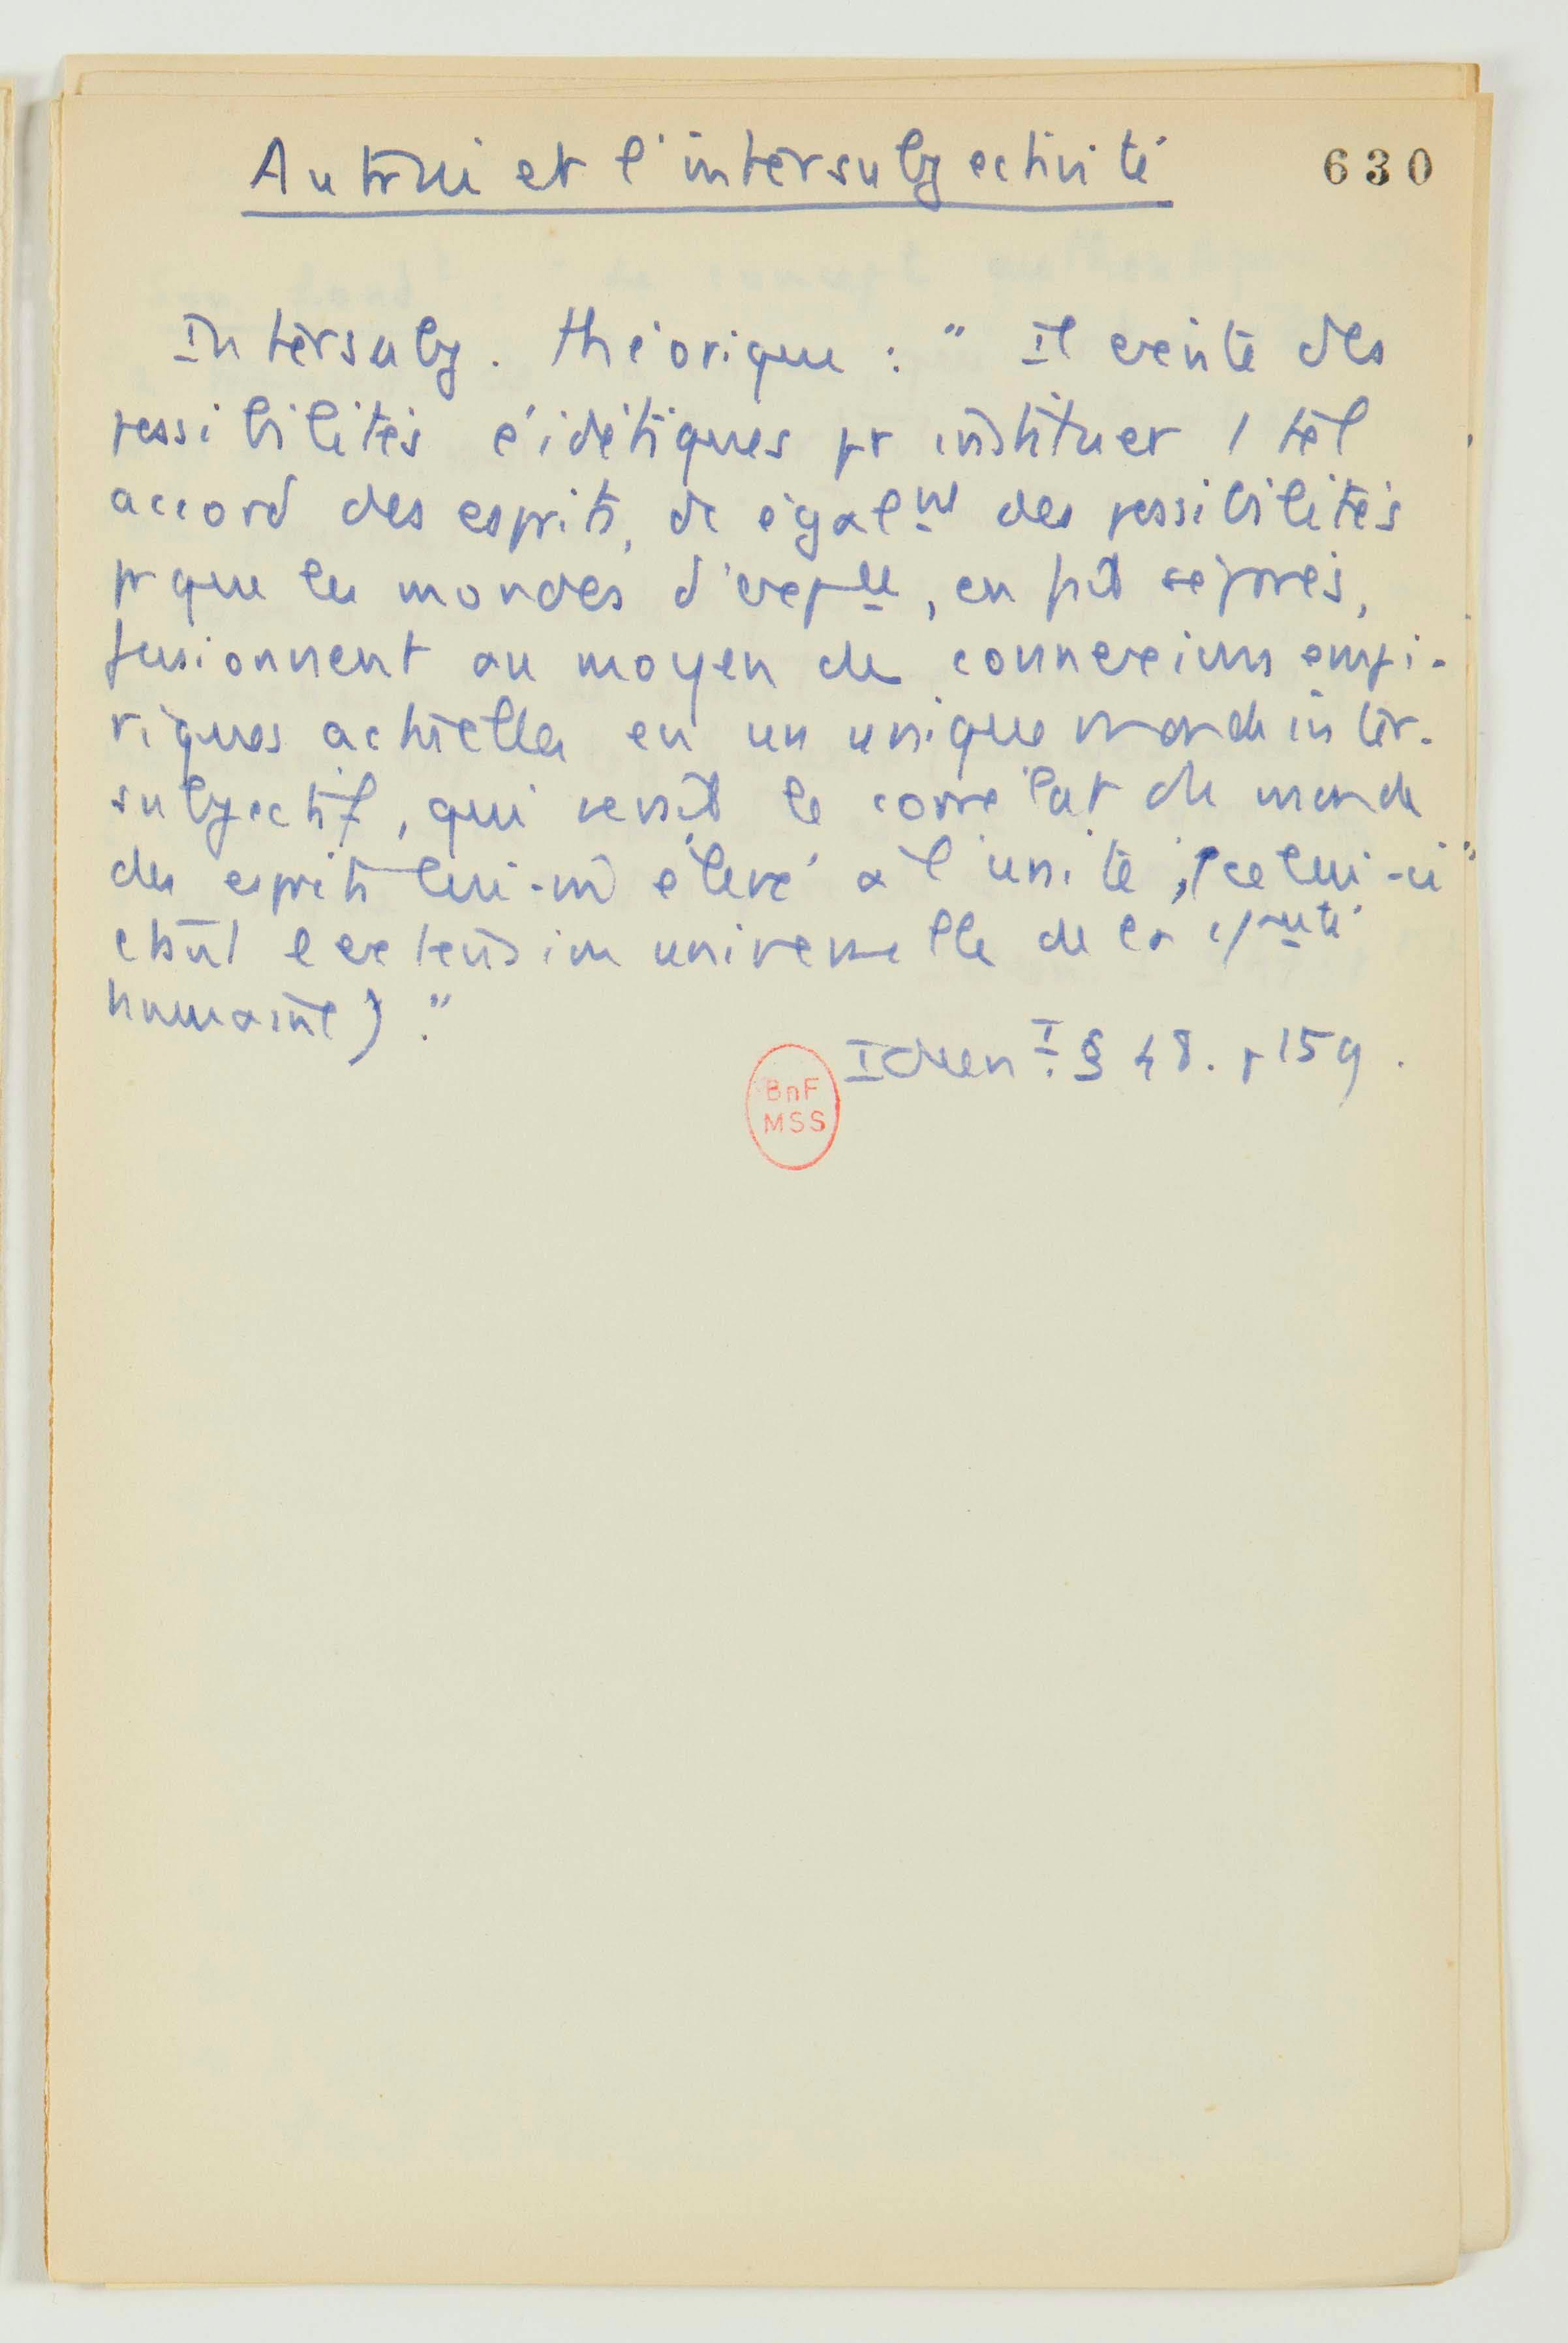 Autrui et l'intersubjectivité
630
Intersubj. théorique : " Il existe des
possibilités éidétiques pr instituer 1 tel
accord des esprits, dc égalnt des possibilités
pr que les mondes d'expce, en fait séparés,
fusionnent au moyen de connexions empi-
riques actuelles en un unique monde inter-
subjectif, qui serait le corrélat du monde
des esprits lui-m̂ élevé à l'unité, (celui-ci"
étant l'extension universelle de la
humaine)."
Ideen I. § 48. p 159.
BnF
MSS